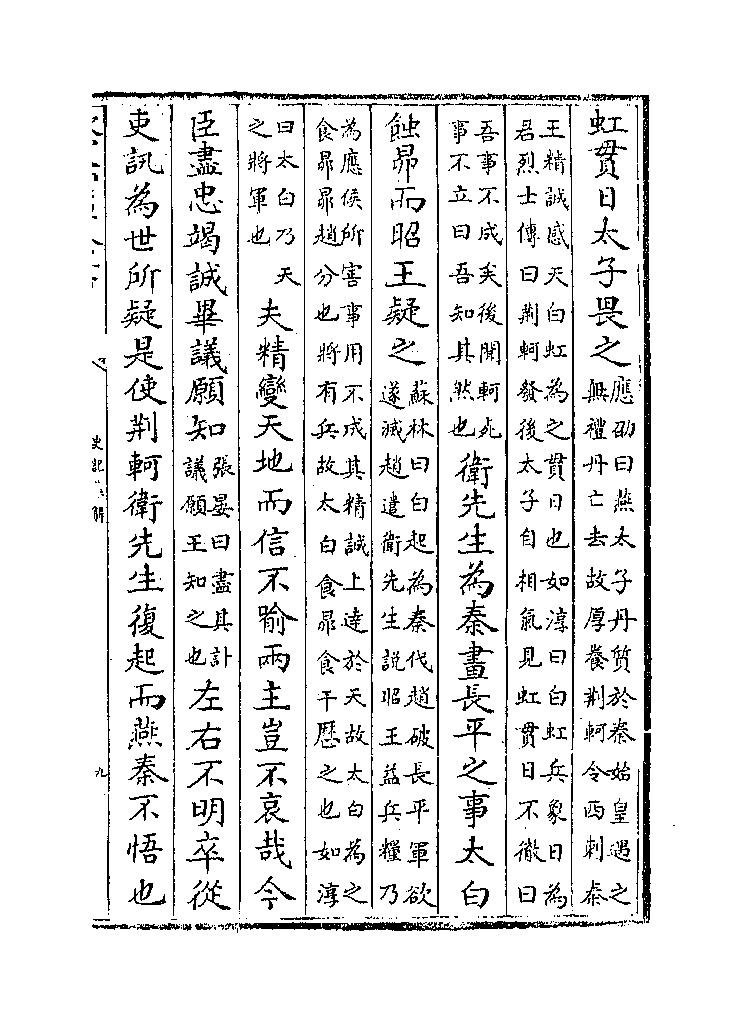 虹貫日太子畏之應劭曰燕太子丹質於秦始皇遇之無禮丹亡去故厚養荆軻令西刺秦
王精誠感天白虹為之貫日也如淳曰白虹兵象日為君烈士傳曰荆軻發後太子自相氣見虹貫日不徹曰
吾事不成矣後聞軻死事不立曰吾知其然也衛先生為秦畫長平之事太白
蝕昴而昭王疑之蘇林曰白起為秦伐趙破長平軍欲遂滅趙遣衛先生說昭王益兵糧乃
為應侯所害事用不成其精誠上達於天故太白為之食昴昴趙分也將有兵故太白食昴食干歴之也如淳
曰太白乃天之將軍也夫精變天地而信不喻兩主豈不哀哉今
臣盡忠竭誠畢議願知張晏曰盡其計議願王知之也左右不明卒從
吏訊為世所疑是使荆軻衛先生復起而燕秦不悟也
史記 解
九